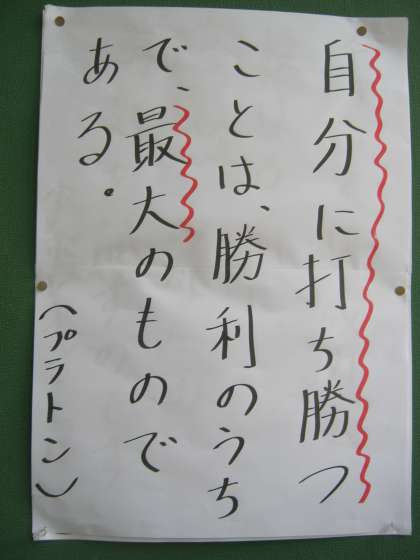 自分に打ち勝つ
ことは、勝利のうち
で、最大のもので
ある。
(プラトン)